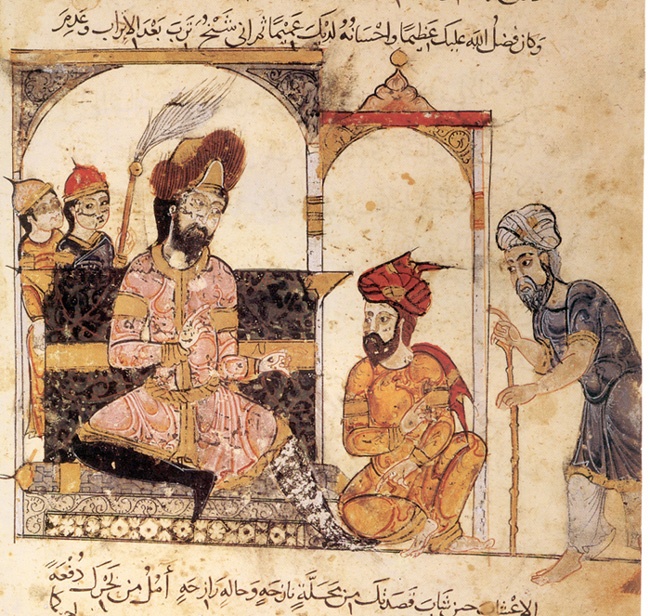 وكان فضل الله عليك عظيمًا واحسانهُ لديك عميمًا ثم انى شيخٌ تربَ بعد الاتراب وعدم
الاعشاب حين شاب قصدتك من محلّةٍ نازحهٍ وحالهٍ رازحهٍ آملُ من بحرك دُفعهً